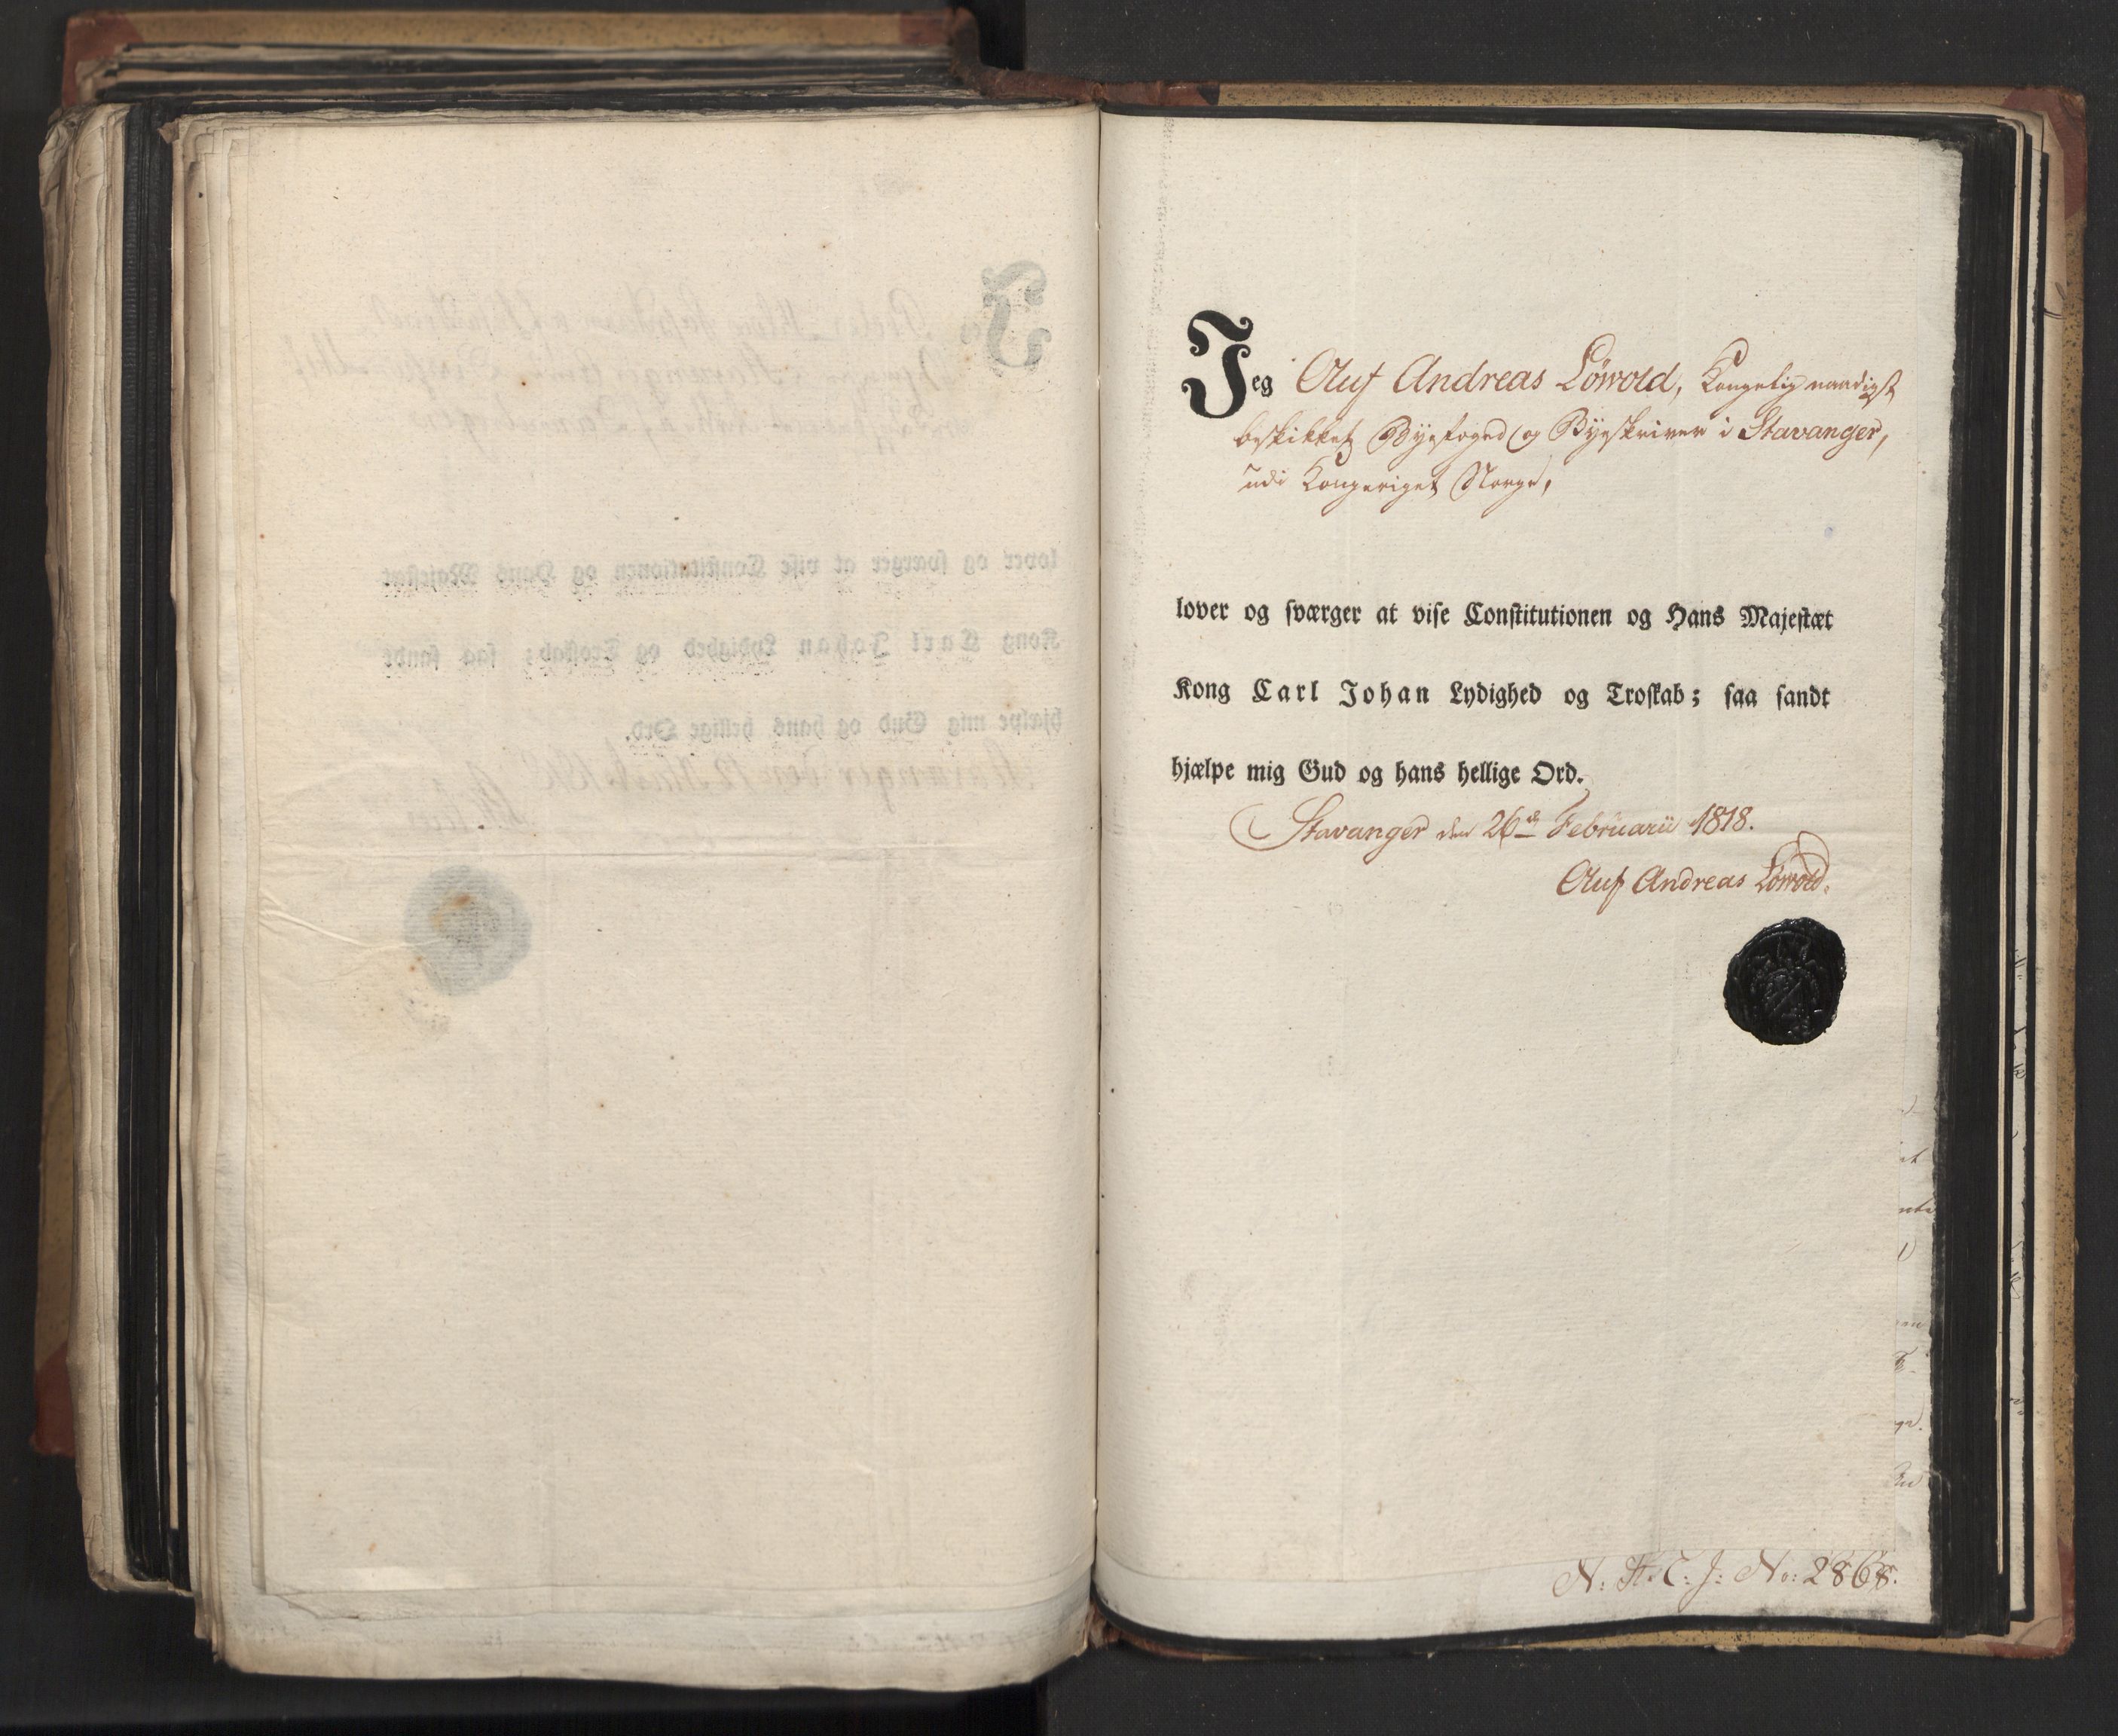 Jeg Oluf Andreas Löwold, Kongelig naadigst
beskikket Byefoged og Byeskriver i Stavanger,
udi Kongeriget Norge,
lover og sværger at vise Constitutionen og Hans Majestæt
Kong Carl Johan Lydighed og Troskab; saa sandt
hjælpe mig Gud og hans hellige Ord.
Stavanger den 26d Februarii 1818.
Oluf Andreas Löwold.
N: H: C: J: No: 2868.